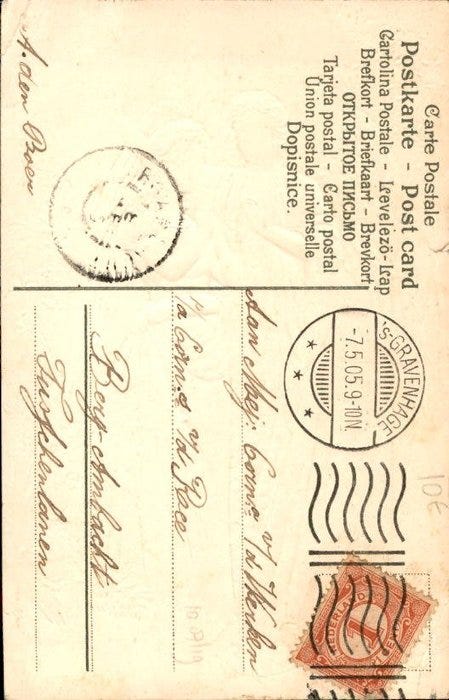 Carte Postale
Postkarte - Post card
Cartolina Postale - Levelezö-Lap
Brefkort - Briefkaart - Brevkort
ОТКРЫТОЕ ПИСЬМО
Tarjeta postal - Carto postal
Union postale universelle
Dopisnice.
A. den Boer
'S-GRAVENHAGE
-7.5.05.9-10N
NEDERLAND
1
Aan Mej. Corn.a v/d Werken
p/a Corn.s v/d Ree
Berg-Ambacht
Tusschenlanen
10€